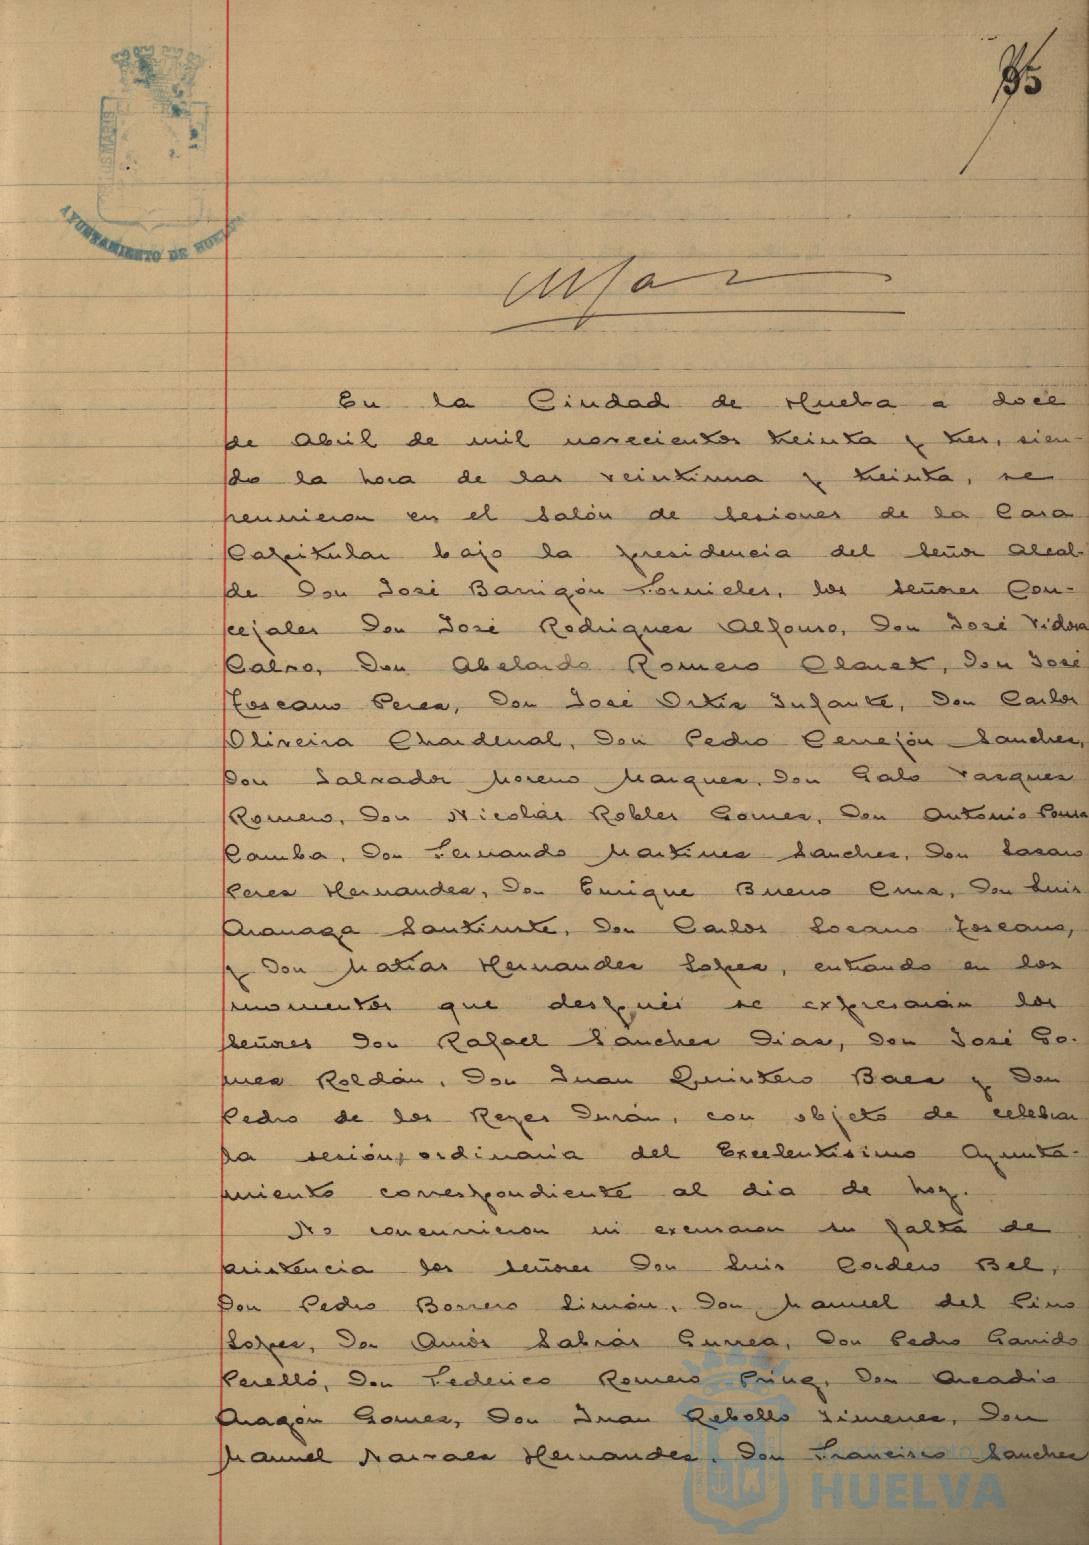 AYUNTAMIENTO DE HUELVA
95
En la Ciudad de Huelva a doce
de Abril de mil novecientos treinta y tres, sien-
do la hora de las veintiuna y treinta, se
reunieron en el Salón de Sesiones de la Casa
Capitular bajo la presidencia del Señor Alcal-
de Don José Barrigón Fornieles, los Señores Con-
cejales Don José Rodrigues Alfonso, Don José Vidosa
Calvo, Don Abelardo Romero Claret, Don José
Toscano Peres, Don José Ortiz Infante, Don Carlos
Oliveira Chardenal, Don Pedro Cerrejón Sanches,
Don Salvador Moreno Marques, Don Galo Vasques
Romero, Don Nicolás Robles Gomes, Don Antonio Pousa
Camba, Don Fernando Martines Sanches, Don Lasaro
Peres Hernandes, Don Enrique Bueno Crus, Don Luis
Aranaga Santiuste, Don Carlos Locano Toscano,
y Don Matías Hernandes Lopes, entrando en los
momentos que después se expresarán los
Señores Don Rafael Sanches Dias, Don José Go-
mes Roldán, Don Juan Quintero Baes y Don
Pedro de los Reyes Durán, con objeto de celebrar
la sesión ordinaria del Excelentísimo Ayunta-
miento correspondiente al dia de hoy.
No concurrieron ni excusaron su falta de
asistencia los Señores Don Luis Cordero Bel,
Don Pedro Borrero Limón, Don Manuel del Pino
Lopes, Don Amós Sabrás Gurrea, Don Pedro Garrido
Perelló, Don Federico Romero Pring, Don Arcadio
Aragón Gomes, Don Juan Rebollo Jimenes, Don
Manuel Narvaes Hernandes, Don Francisco Sanches
HUELVA